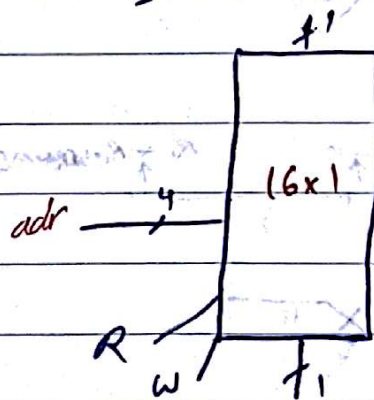 1
16x1
4
adr
R
W
1